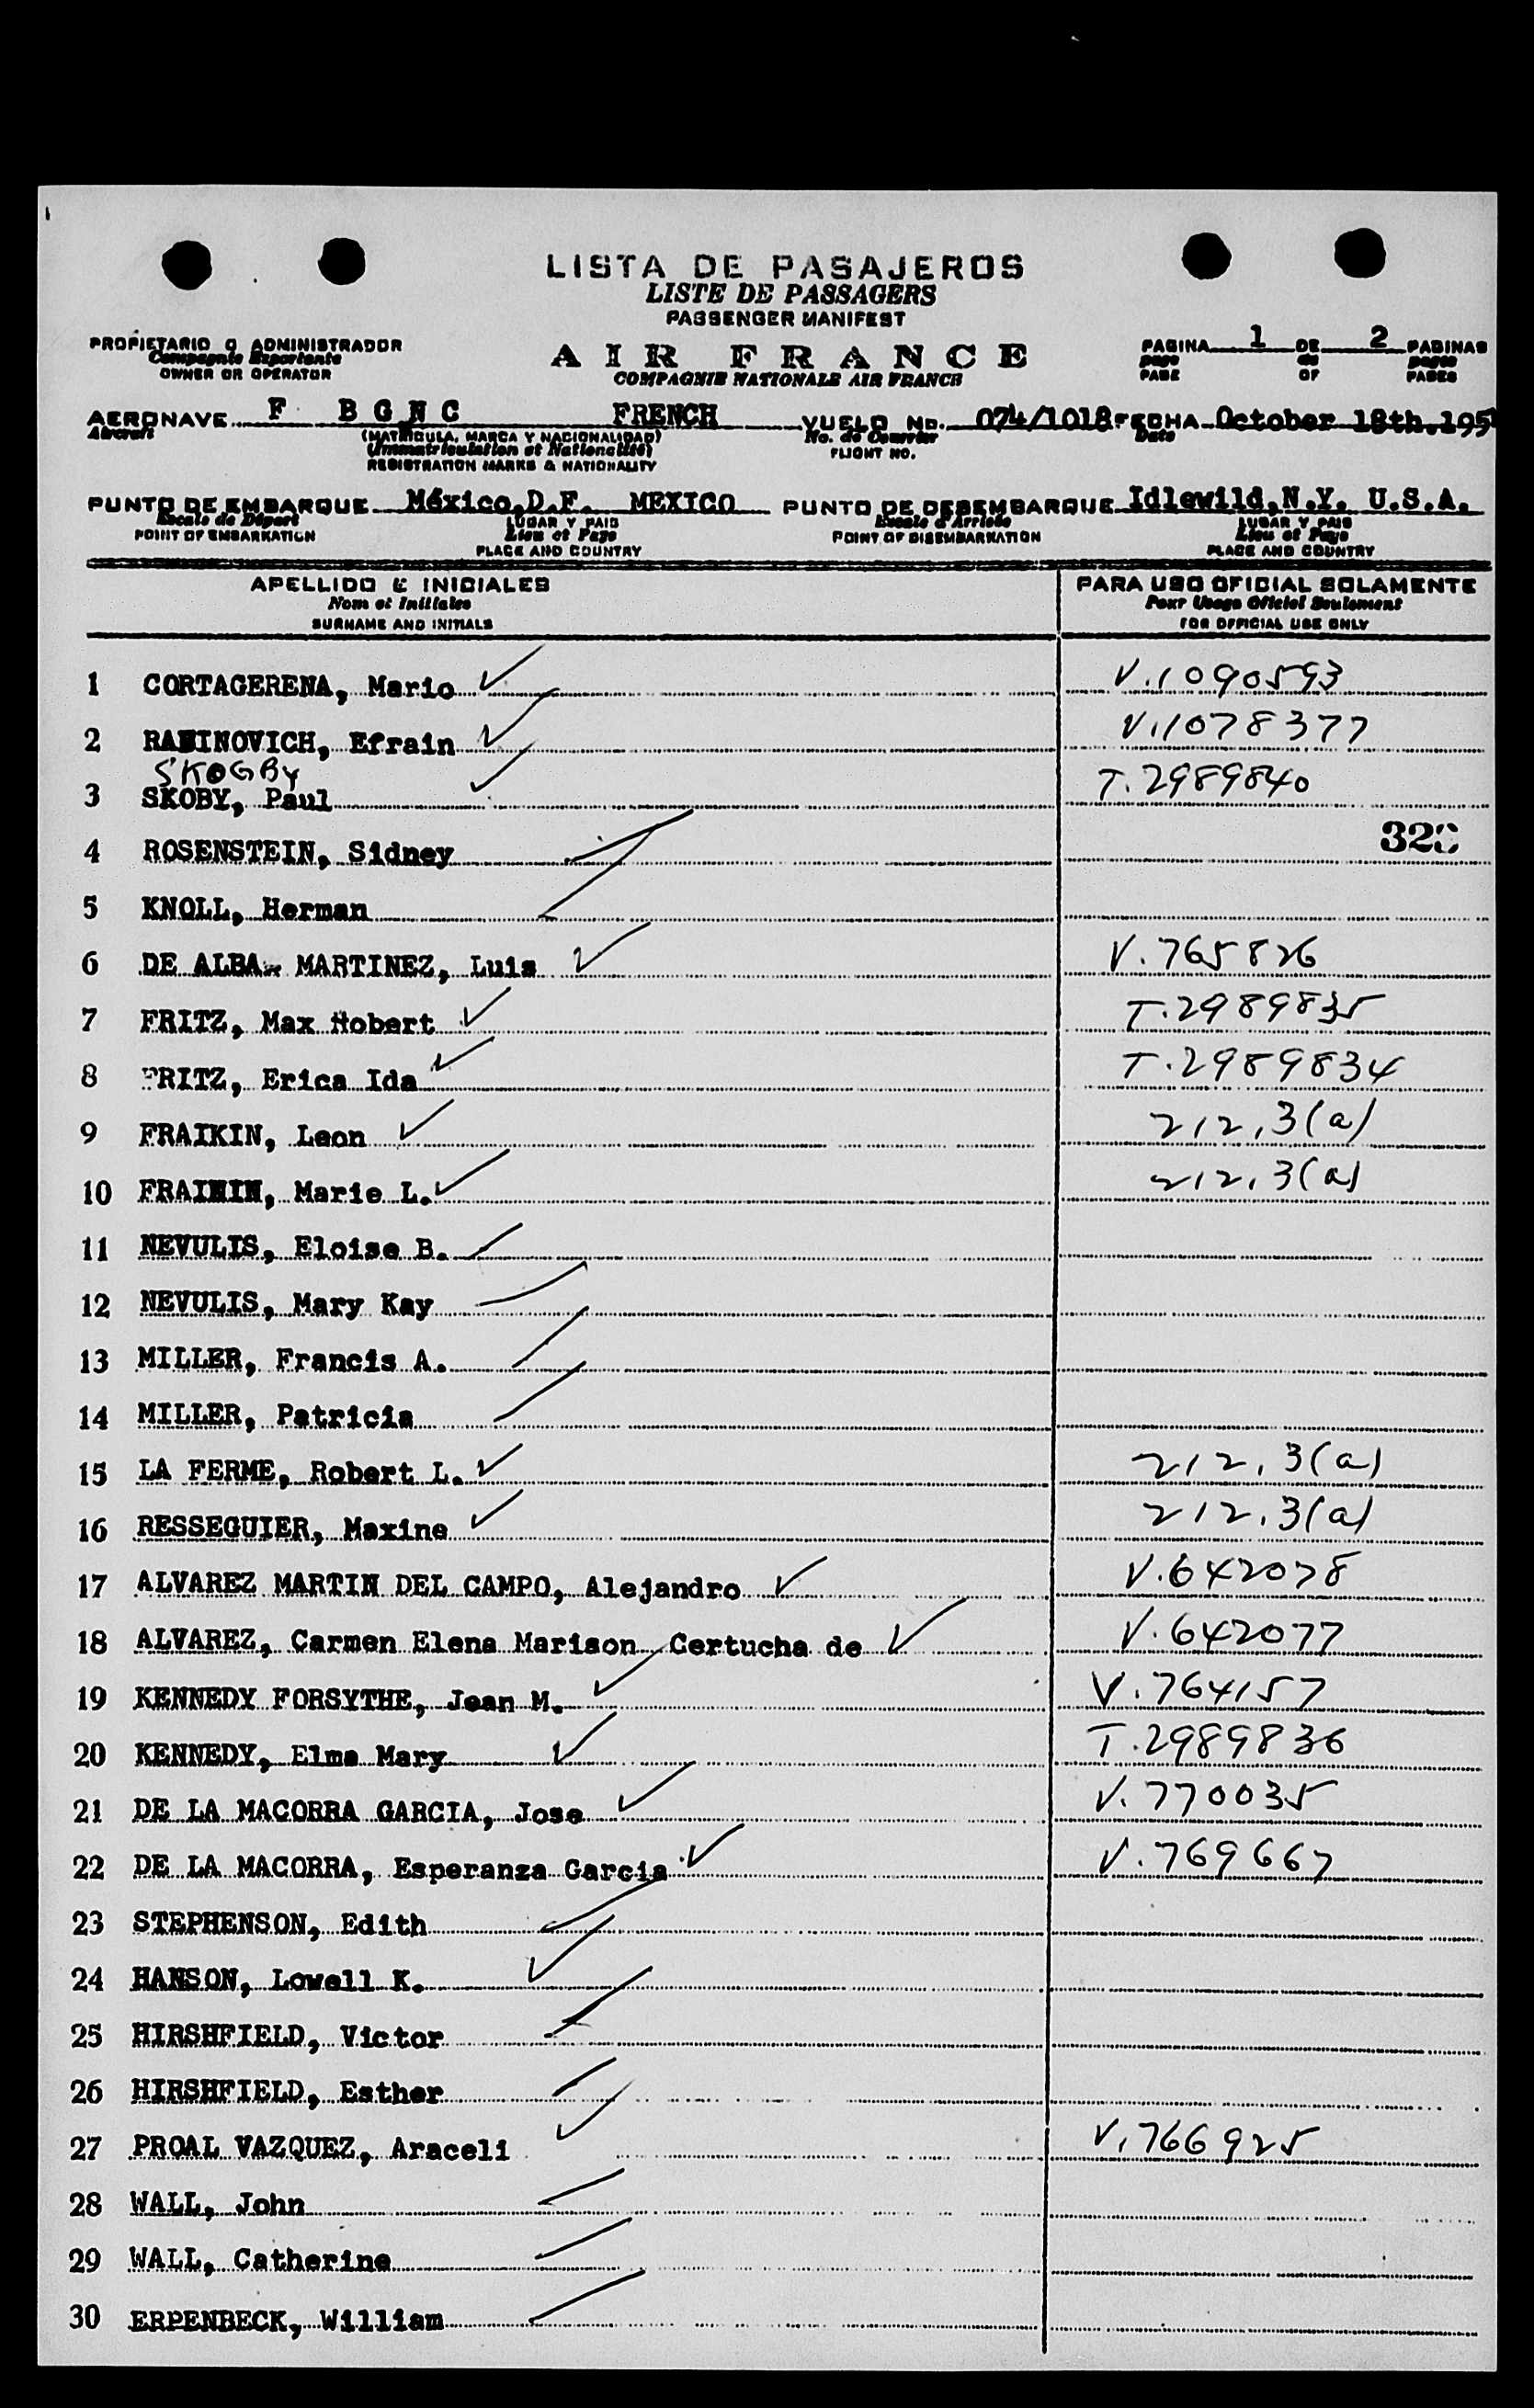 LISTA DE PASAJEROS
LISTE DE PASSAGERS
PASSENGER MANIFEST
PROPIETARIO O ADMINISTRADOR
Compagnie Exportante
OWNER OR OPERATOR
AIR FRANCE
COMPAGNIE NATIONALE AIR FRANCE
PAGINA 1 DE 2 PAGINAS
page de pages
PAGE OF PAGES
AERONAVE F BGNC FRENCH VUELO No. 074/1018 FECHA October 18th, 195
Aircraft (MATRICULA, MARCA Y NACIONALIDAD) No. de Courrier Date
(Immatriculation et Nationalité) FLIGHT NO.
REGISTRATION MARKS & NATIONALITY
PUNTO DE EMBARQUE México, D.F. MEXICO PUNTO DE DESEMBARQUE Idlewild, N.Y. U.S.A.
Escale de Départ LUGAR Y PAIS Escale d'Arrivée LUGAR Y PAIS
POINT OF EMBARKATION Lieu et Pays POINT OF DISEMBARKATION Lieu et Pays
PLACE AND COUNTRY PLACE AND COUNTRY
APELLIDO E INICIALES PARA USO OFICIAL SOLAMENTE
Nom et Initiales Pour Usage Officiel Seulement
SURNAME AND INITIALS FOR OFFICIAL USE ONLY
1 CORTAGERENA, Mario V.1090593
2 RABINOVICH, Efrain V.1078377
SKOGBY
3 SKOBY, Paul T.2989840
4 ROSENSTEIN, Sidney 32
5 KNOLL, Herman
6 DE ALBA MARTINEZ, Luis V.765826
7 FRITZ, Max Robert T.2989835
8 FRITZ, Erica Ida T.2989834
9 FRAIKIN, Leon 212.3(a)
10 FRAININ, Marie L. 212.3(a)
11 NEVULIS, Eloise B.
12 NEVULIS, Mary Kay
13 MILLER, Francis A.
14 MILLER, Patricia
15 LA FERME, Robert L. 212.3(a)
16 RESSEGUIER, Maxine 212.3(a)
17 ALVAREZ MARTIN DEL CAMPO, Alejandro V.642078
18 ALVAREZ, Carmen Elena Marison Certucha de V.642077
19 KENNEDY FORSYTHE, Jean M. V.764157
20 KENNEDY, Elma Mary T.2989836
21 DE LA MACORRA GARCIA, Jose V.770035
22 DE LA MACORRA, Esperanza Garcia V.769667
23 STEPHENSON, Edith
24 HANSON, Lowell K.
25 HIRSHFIELD, Victor
26 HIRSHFIELD, Esther
27 PROAL VAZQUEZ, Araceli V.766925
28 WALL, John
29 WALL, Catherine
30 ERPENBECK, William